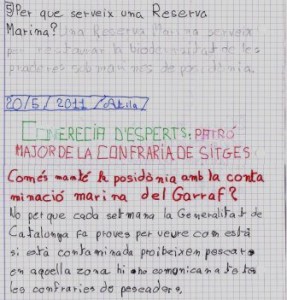 ⑤Per que serveix una Reserva
Marina? Una Reserva Marina serveix
per restaurar la biodiversitat de les
praderes submarines de posidònia.
20/5/2011/Àtila/
CONFERECIA D'ESPERTS: PATRÓ
MAJOR DE LA CONFRARIA DE SITGES
Comés manté la posidònia amb la conta
minació marina del Garraf?
No perque cada setmana la Generalitat de
Catalunya fa proves per veure com està
si està contaminada proibeixen pescar
en aquella zona hi ho comunica a totes
les confraries de pescadors.